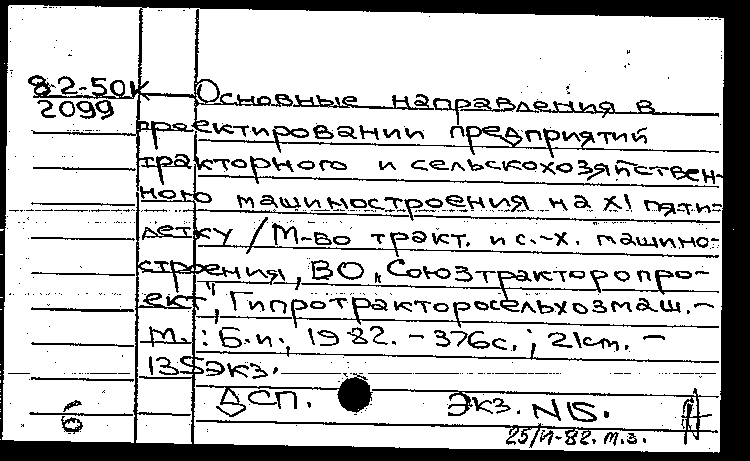 82-50К
2099
Основные направления в
проектировании предприятий
тракторного и сельскохозяйствен-
ного машиностроения на XI пяти-
летку / М-во тракт. и с.-х. машино-
строения, ВО „Союзтракторопро-
ект", Гипротракторосельхозмаш. -
М.: Б.и., 1982. - 376с.; 21см. -
135экз.
ДСП. Экз. N15.
25/VI-82. т.з.